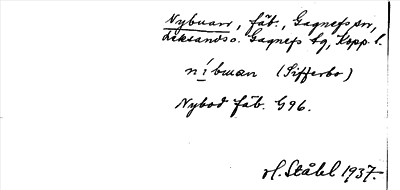 Nybuan, fäb., Gagnefs sn,
Leksands o. Gagnefs tg, Kopp. l.
ni´bwan (Sifferbo)
Nybod fäb. G96.
H. Ståhl 1937.